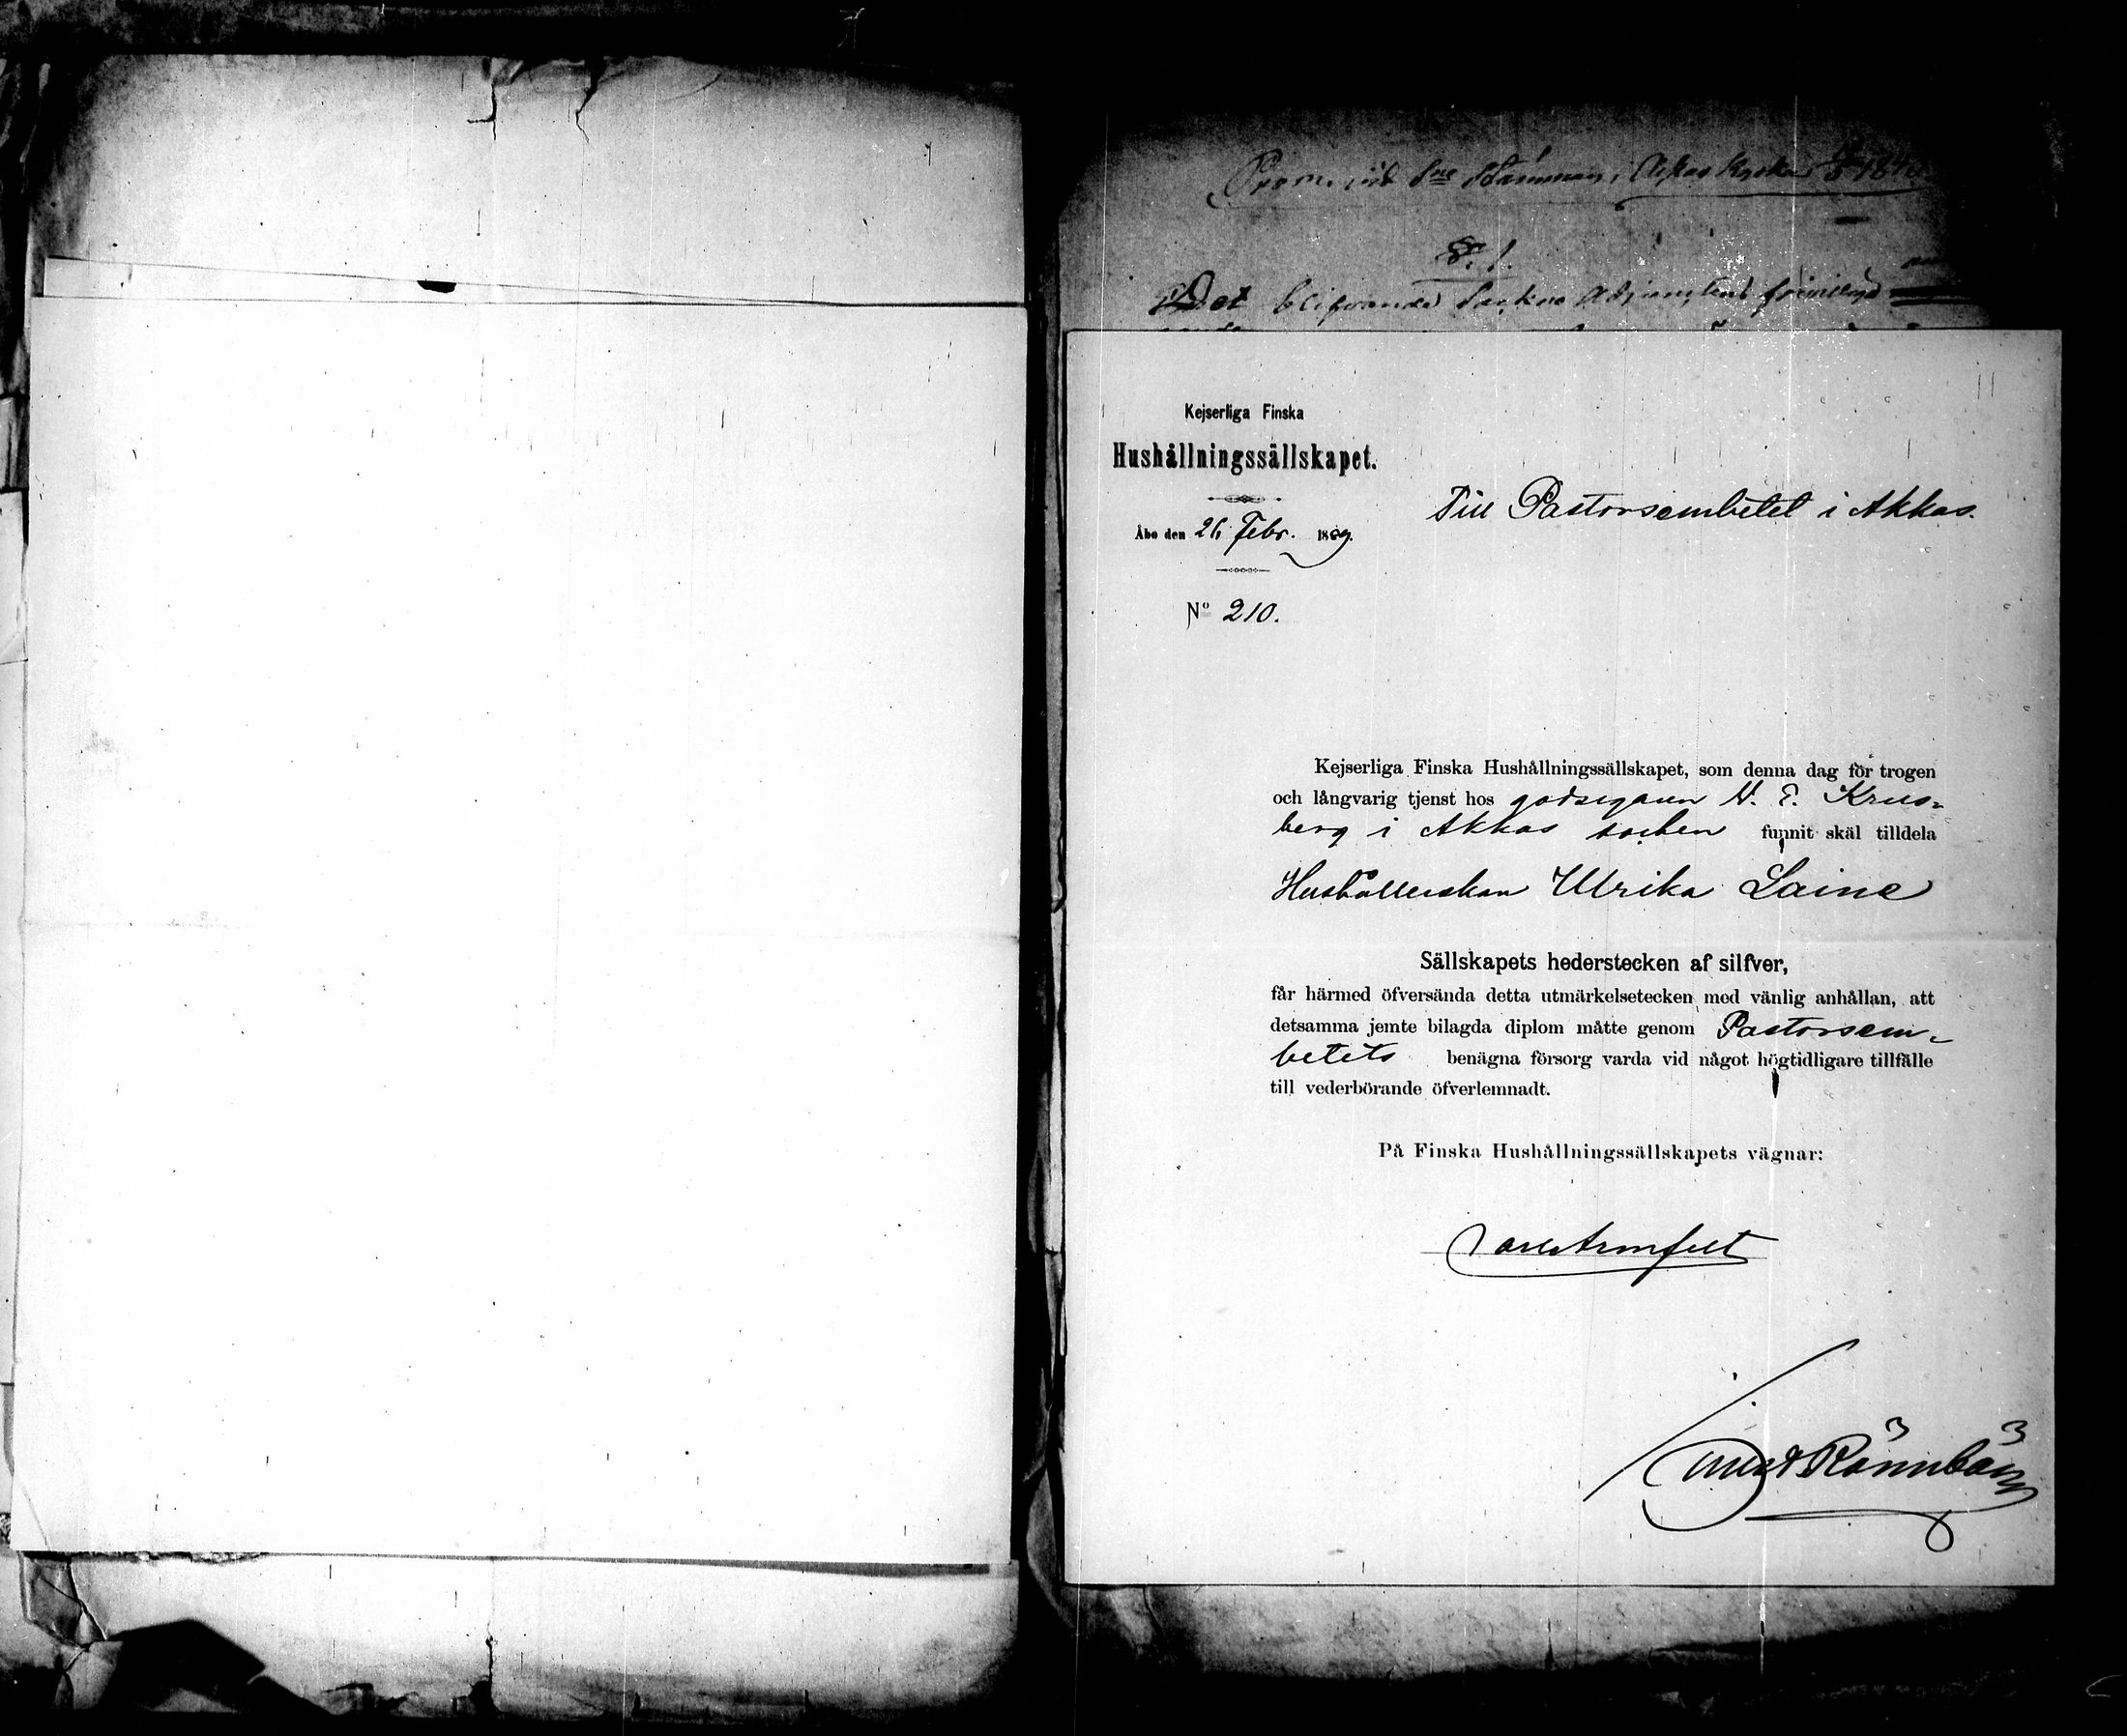 Kejserliga Finska
Hushållningssällskapet.
Åbo den 26 Febr.
Till Pastorsembetet i Akkas.
No 210.
Kejserliga Finska Hushållningssällskapet, som denna dag för trogen
och långvarig tjenst hos godsegaren Krus-
berg i Akkas socken funnit skäl tilldela
Hushållerskan Ulrika Laine
Sällskapets hederstecken af silfver,
får härmed öfversända detta utmärkelsetecken med vänlig anhållan, att
detsamma jemte bilagda diplom måtte genom Pastorsem-
betets benägna försorg varda vid något högtidligare tillfälle
till vederbörande öfverlemnadt.
På Finska Hushållningssällskapets vägnar:
Carl Armfelt
Rönnbäck
§. 1.
Det blifvande